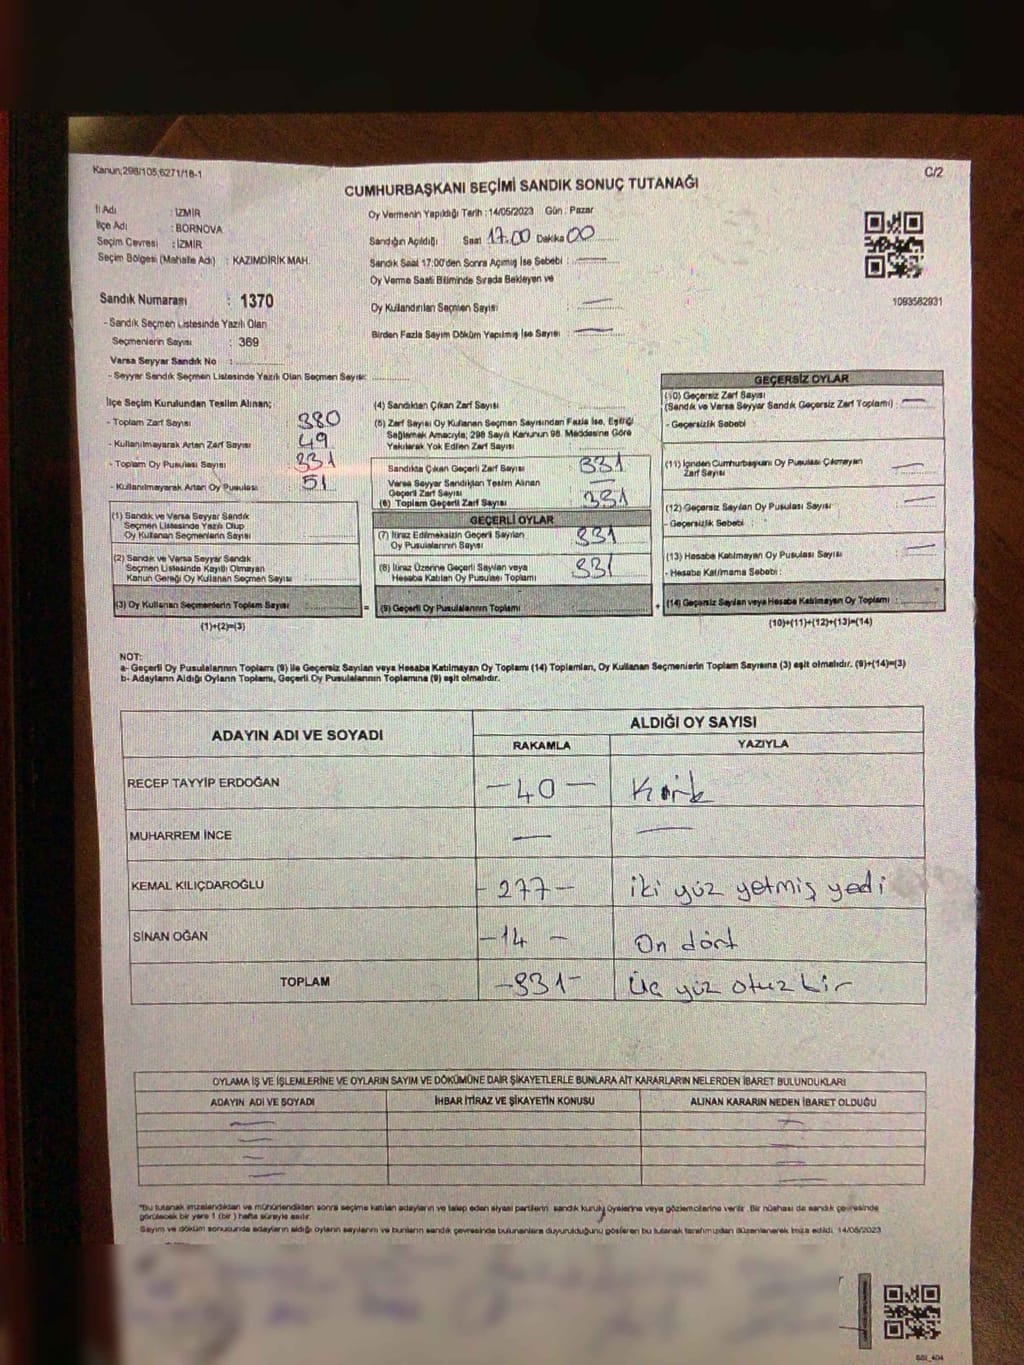 Kanun;298/105,6271/18-1
C/2
CUMHURBAŞKANI SEÇİMİ SANDIK SONUÇ TUTANAĞI
İl Adı : İZMİR
İlçe Adı : BORNOVA
Seçim Çevresi : İZMİR
Seçim Bölgesi (Mahalle Adı) : KAZIMDİRİK MAH.
Oy Vermenin Yapıldığı Tarih : 14/05/2023 Gün : Pazar
Sandığın Açıldığı Saat 17.00 Dakika 00
Sandık Saat 17:00'den Sonra Açılmış İse Sebebi :
Oy Verme Saati Bitiminde Sırada Bekleyen ve
Oy Kullandırılan Seçmen Sayısı
Birden Fazla Sayım Döküm Yapılmış İse Sayısı :
1093582931
Sandık Numarası : 1370
- Sandık Seçmen Listesinde Yazılı Olan
Seçmenlerin Sayısı : 369
Varsa Seyyar Sandık No :
- Seyyar Sandık Seçmen Listesinde Yazılı Olan Seçmen Sayısı:
İlçe Seçim Kurulundan Teslim Alınan;
- Toplam Zarf Sayısı : 380
- Kullanılmayarak Artan Zarf Sayısı : 49
- Toplam Oy Pusulası Sayısı : 331
- Kullanılmayarak Artan Oy Pusulası : 51
(1) Sandık ve Varsa Seyyar Sandık
Seçmen Listesinde Yazılı Olup
Oy Kullanan Seçmenlerin Sayısı :
(2) Sandık ve Varsa Seyyar Sandık
Seçmen Listesinde Kayıtlı Olmayan
Kanun Gereği Oy Kullanan Seçmen Sayısı :
(3) Oy Kullanan Seçmenlerin Toplam Sayısı :
(1)+(2)=(3)
(4) Sandıktan Çıkan Zarf Sayısı :
(5) Zarf Sayısı Oy Kullanan Seçmen Sayısından Fazla İse, Eşitliği
Sağlamak Amacıyla; 298 Sayılı Kanunun 98. Maddesine Göre
Yakılarak Yok Edilen Zarf Sayısı :
Sandıkta Çıkan Geçerli Zarf Sayısı : 331
Varsa Seyyar Sandıktan Teslim Alınan
Geçerli Zarf Sayısı :
(6) Toplam Geçerli Zarf Sayısı : 331
GEÇERLİ OYLAR
(7) İtiraz Edilmeksizin Geçerli Sayılan
Oy Pusulalarının Sayısı : 331
(8) İtiraz Üzerine Geçerli Sayılan veya
Hesaba Katılan Oy Pusulası Toplamı : 331
= (9) Geçerli Oy Pusulalarının Toplamı :
GEÇERSİZ OYLAR
(10) Geçersiz Zarf Sayısı
(Sandık ve Varsa Seyyar Sandık Geçersiz Zarf Toplamı) :
- Geçersizlik Sebebi :
(11) İçinden Cumhurbaşkanı Oy Pusulası Çıkmayan
Zarf Sayısı :
(12) Geçersiz Sayılan Oy Pusulası Sayısı :
- Geçersizlik Sebebi :
(13) Hesaba Katılmayan Oy Pusulası Sayısı :
- Hesaba Katılmama Sebebi :
+ (14) Geçersiz Sayılan veya Hesaba Katılmayan Oy Toplamı :
(10)+(11)+(12)+(13)=(14)
NOT:
a- Geçerli Oy Pusulalarının Toplamı (9) ile Geçersiz Sayılan veya Hesaba Katılmayan Oy Toplamı (14) Toplamları, Oy Kullanan Seçmenlerin Toplam Sayısına (3) eşit olmalıdır. (9)+(14)=(3)
b- Adayların Aldığı Oyların Toplamı, Geçerli Oy Pusulalarının Toplamına (9) eşit olmalıdır.
ADAYIN ADI VE SOYADI
ALDIĞI OY SAYISI
RAKAMLA YAZIYLA
RECEP TAYYİP ERDOĞAN - 40 - Kırk
MUHARREM İNCE — —
KEMAL KILIÇDAROĞLU - 277 - iki yüz yetmiş yedi
SİNAN OĞAN - 14 - On dört
TOPLAM - 331 - Üç yüz otuz bir
OYLAMA İŞ VE İŞLEMLERİNE VE OYLARIN SAYIM VE DÖKÜMÜNE DAİR ŞİKAYETLERLE BUNLARA AİT KARARLARIN NELERDEN İBARET BULUNDUKLARI
ADAYIN ADI VE SOYADI İHBAR İTİRAZ VE ŞİKAYETİN KONUSU ALINAN KARARIN NEDEN İBARET OLDUĞU
"Bu tutanak imzalandıktan ve mühürlendikten sonra seçime katılan adayların ve talep eden siyasi partilerin sandık kurulu üyelerine veya gözlemcilerine verilir. Bir nüshası da sandık çevresinde
görülecek bir yere 1 (bir) hafta süreyle asılır.
Sayım ve döküm sonucunda adayların aldığı oyların sayılarını ve bunların sandık çevresinde bulunanlara duyurulduğunu gösteren bu tutanak tarafımızdan düzenlenerek imza edildi. 14/05/2023